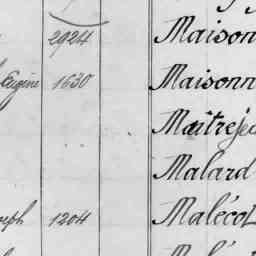 2924 Maison
Eugène 1630 Maisonn
Maîtreje
Malard
orph 1204 Malécot